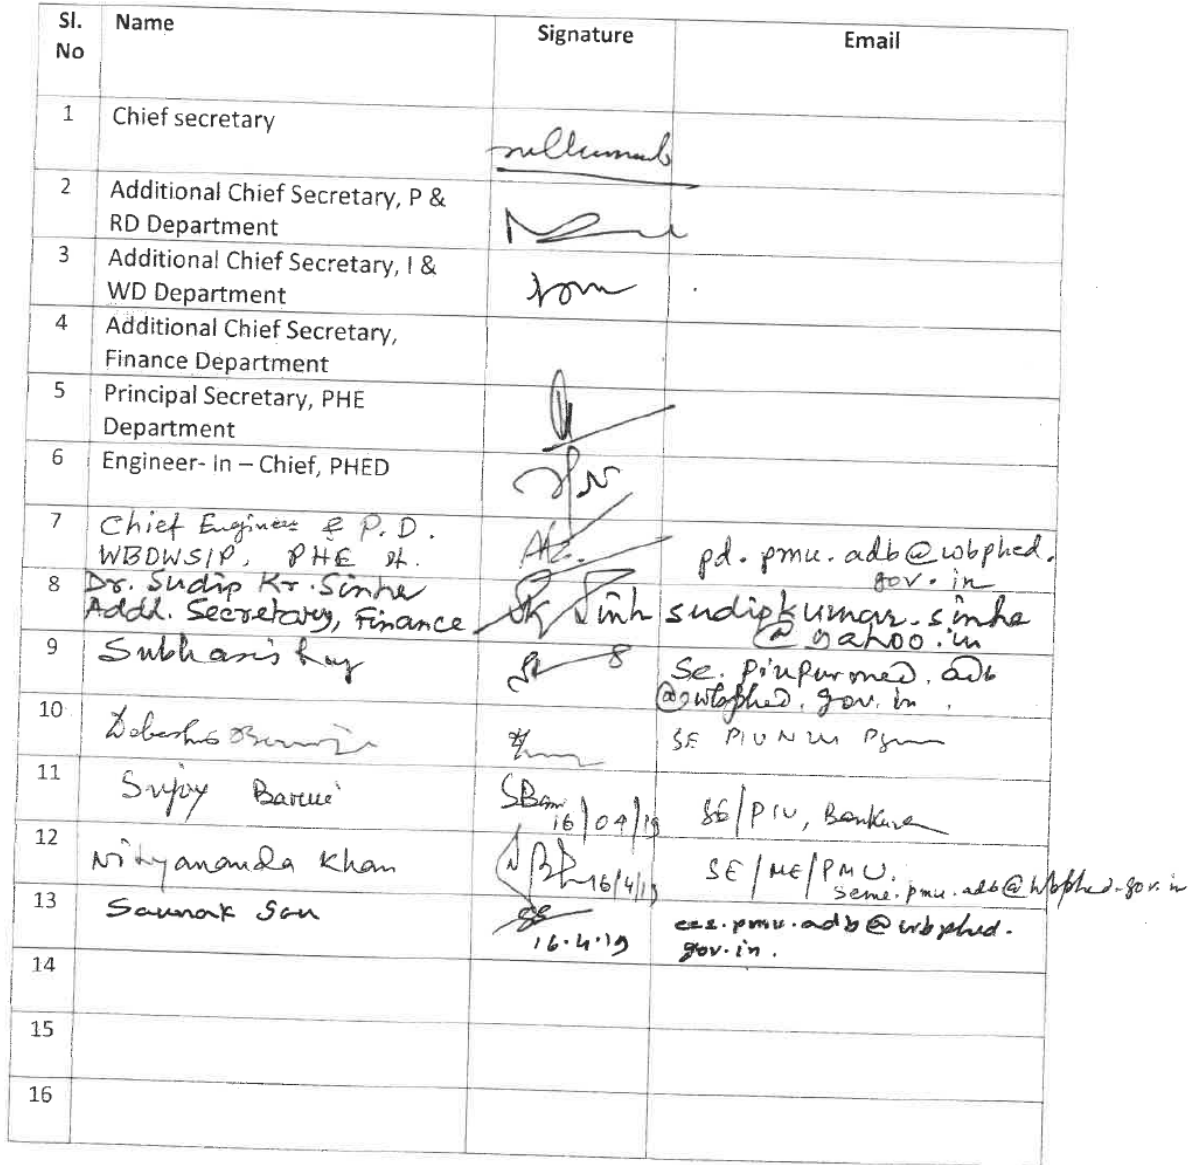 Sl. No Name Signature Email
1 Chief secretary
2 Additional Chief Secretary, P &
RD Department
3 Additional Chief Secretary, I &
WD Department
4 Additional Chief Secretary,
Finance Department
5 Principal Secretary, PHE
Department
6 Engineer- in – Chief, PHED
7 Chief Engineer & P.D.
WBDWSIP, PHE pd.pmu.adb@wbphed.
gov.in
8 Dr. Sudip Kr. Sinha
Addl. Secretary, Finance sudipkumar.sinha
@yahoo.in
9 Subhasis Ray
@wbphed.gov.in
10 SE PIU
11 Sujoy Barui 16/04/19 SE/PIU, Bankura
12 Nityananda Khan 16/4/19 SE/ME/PMU.
seme.pmu.adb@wbphed.gov.in
13 Saunak Sau 16.4.19 .pmu.adb@wbphed.
gov.in.
14
15
16